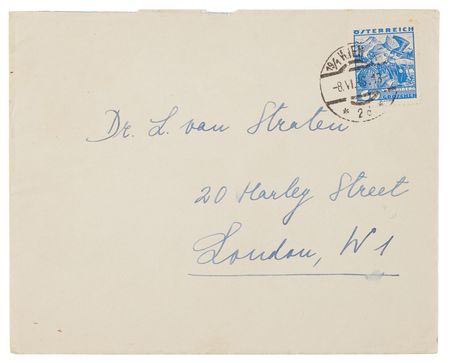 ÖSTERREICH
19/1 WIEN
-8.VI.
* 2c
Dr. L. van Straten
20 Harley Street
London, W1